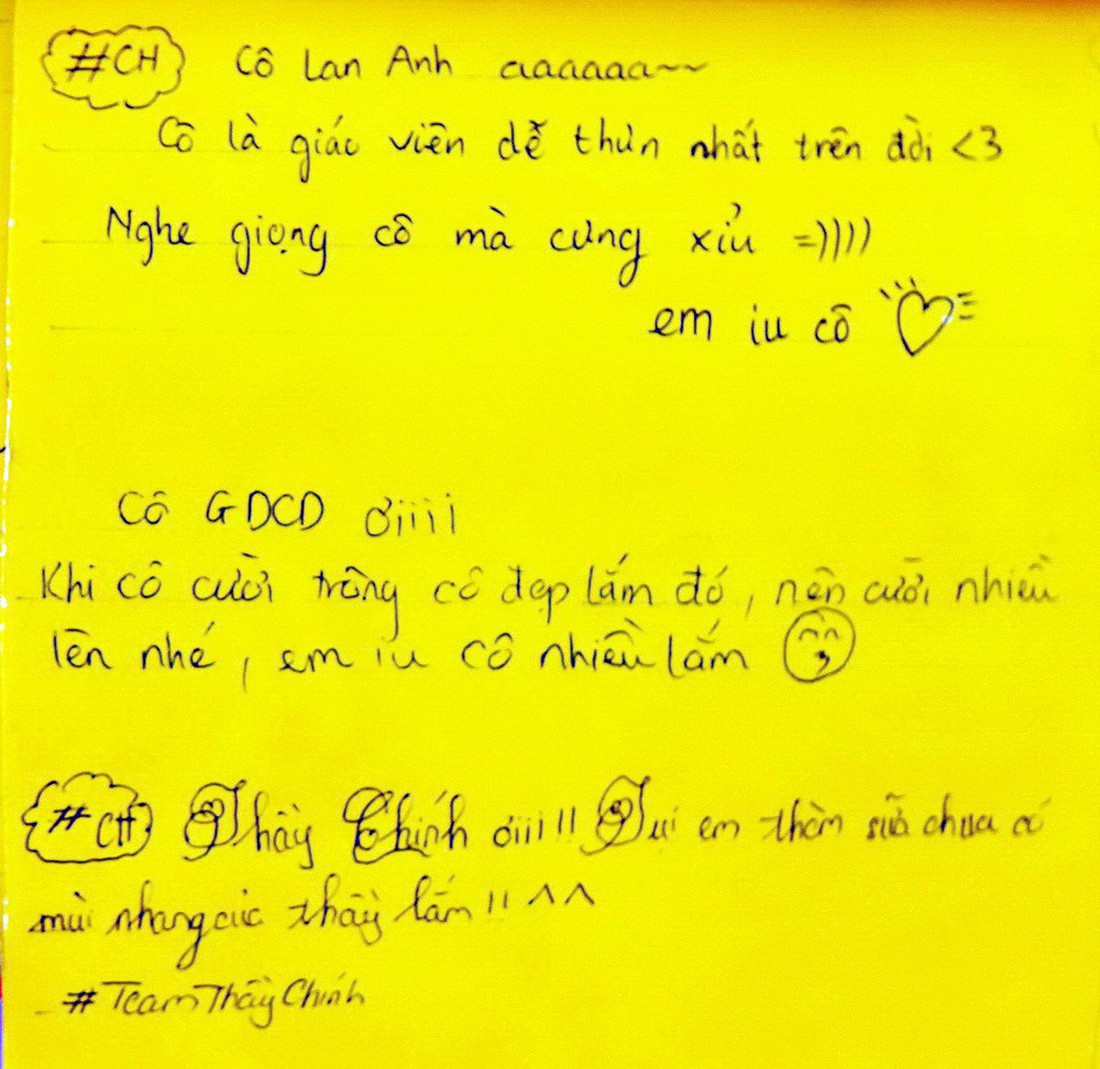 #CH Cô Lan Anh aaaaaa~~
Cô là giáo viên dễ thưn nhất trên đời <3
Nghe giọng cô mà cưng xỉu =))))
em iu cô
Cô GDCD ơiiii
Khi cô cười trông cô đẹp lắm đó, nên cười nhiều
lên nhé, em iu cô nhiều lắm
#CH Thầy Chính ơiiii!! Tụi em thèm sữa chua có
mùi nhang của thầy lắm!! ^^
#TeamThầyChính